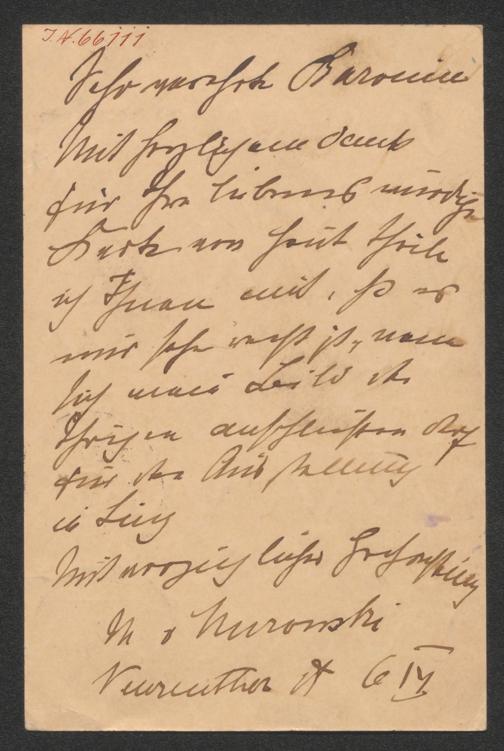 I.N. 66111
Sehr verehrte Baronin
Mit herzlichem Dank
für Ihre liebenswürdige
Karte von heut theile
ich Ihnen mit, ß es
mir sehr recht ist, wenn
sich mein Bild den
Ihrigen anschließen darf
für die Ausstellung
in Linz
Mit vorzüglicher Hochachtung
M v
6 IV